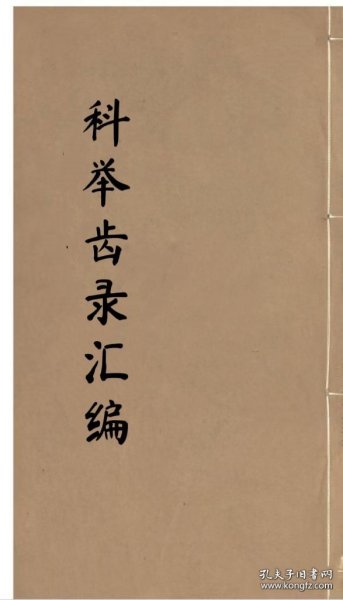 科举齿录汇编
孔夫子旧书网
www.kongfz.com